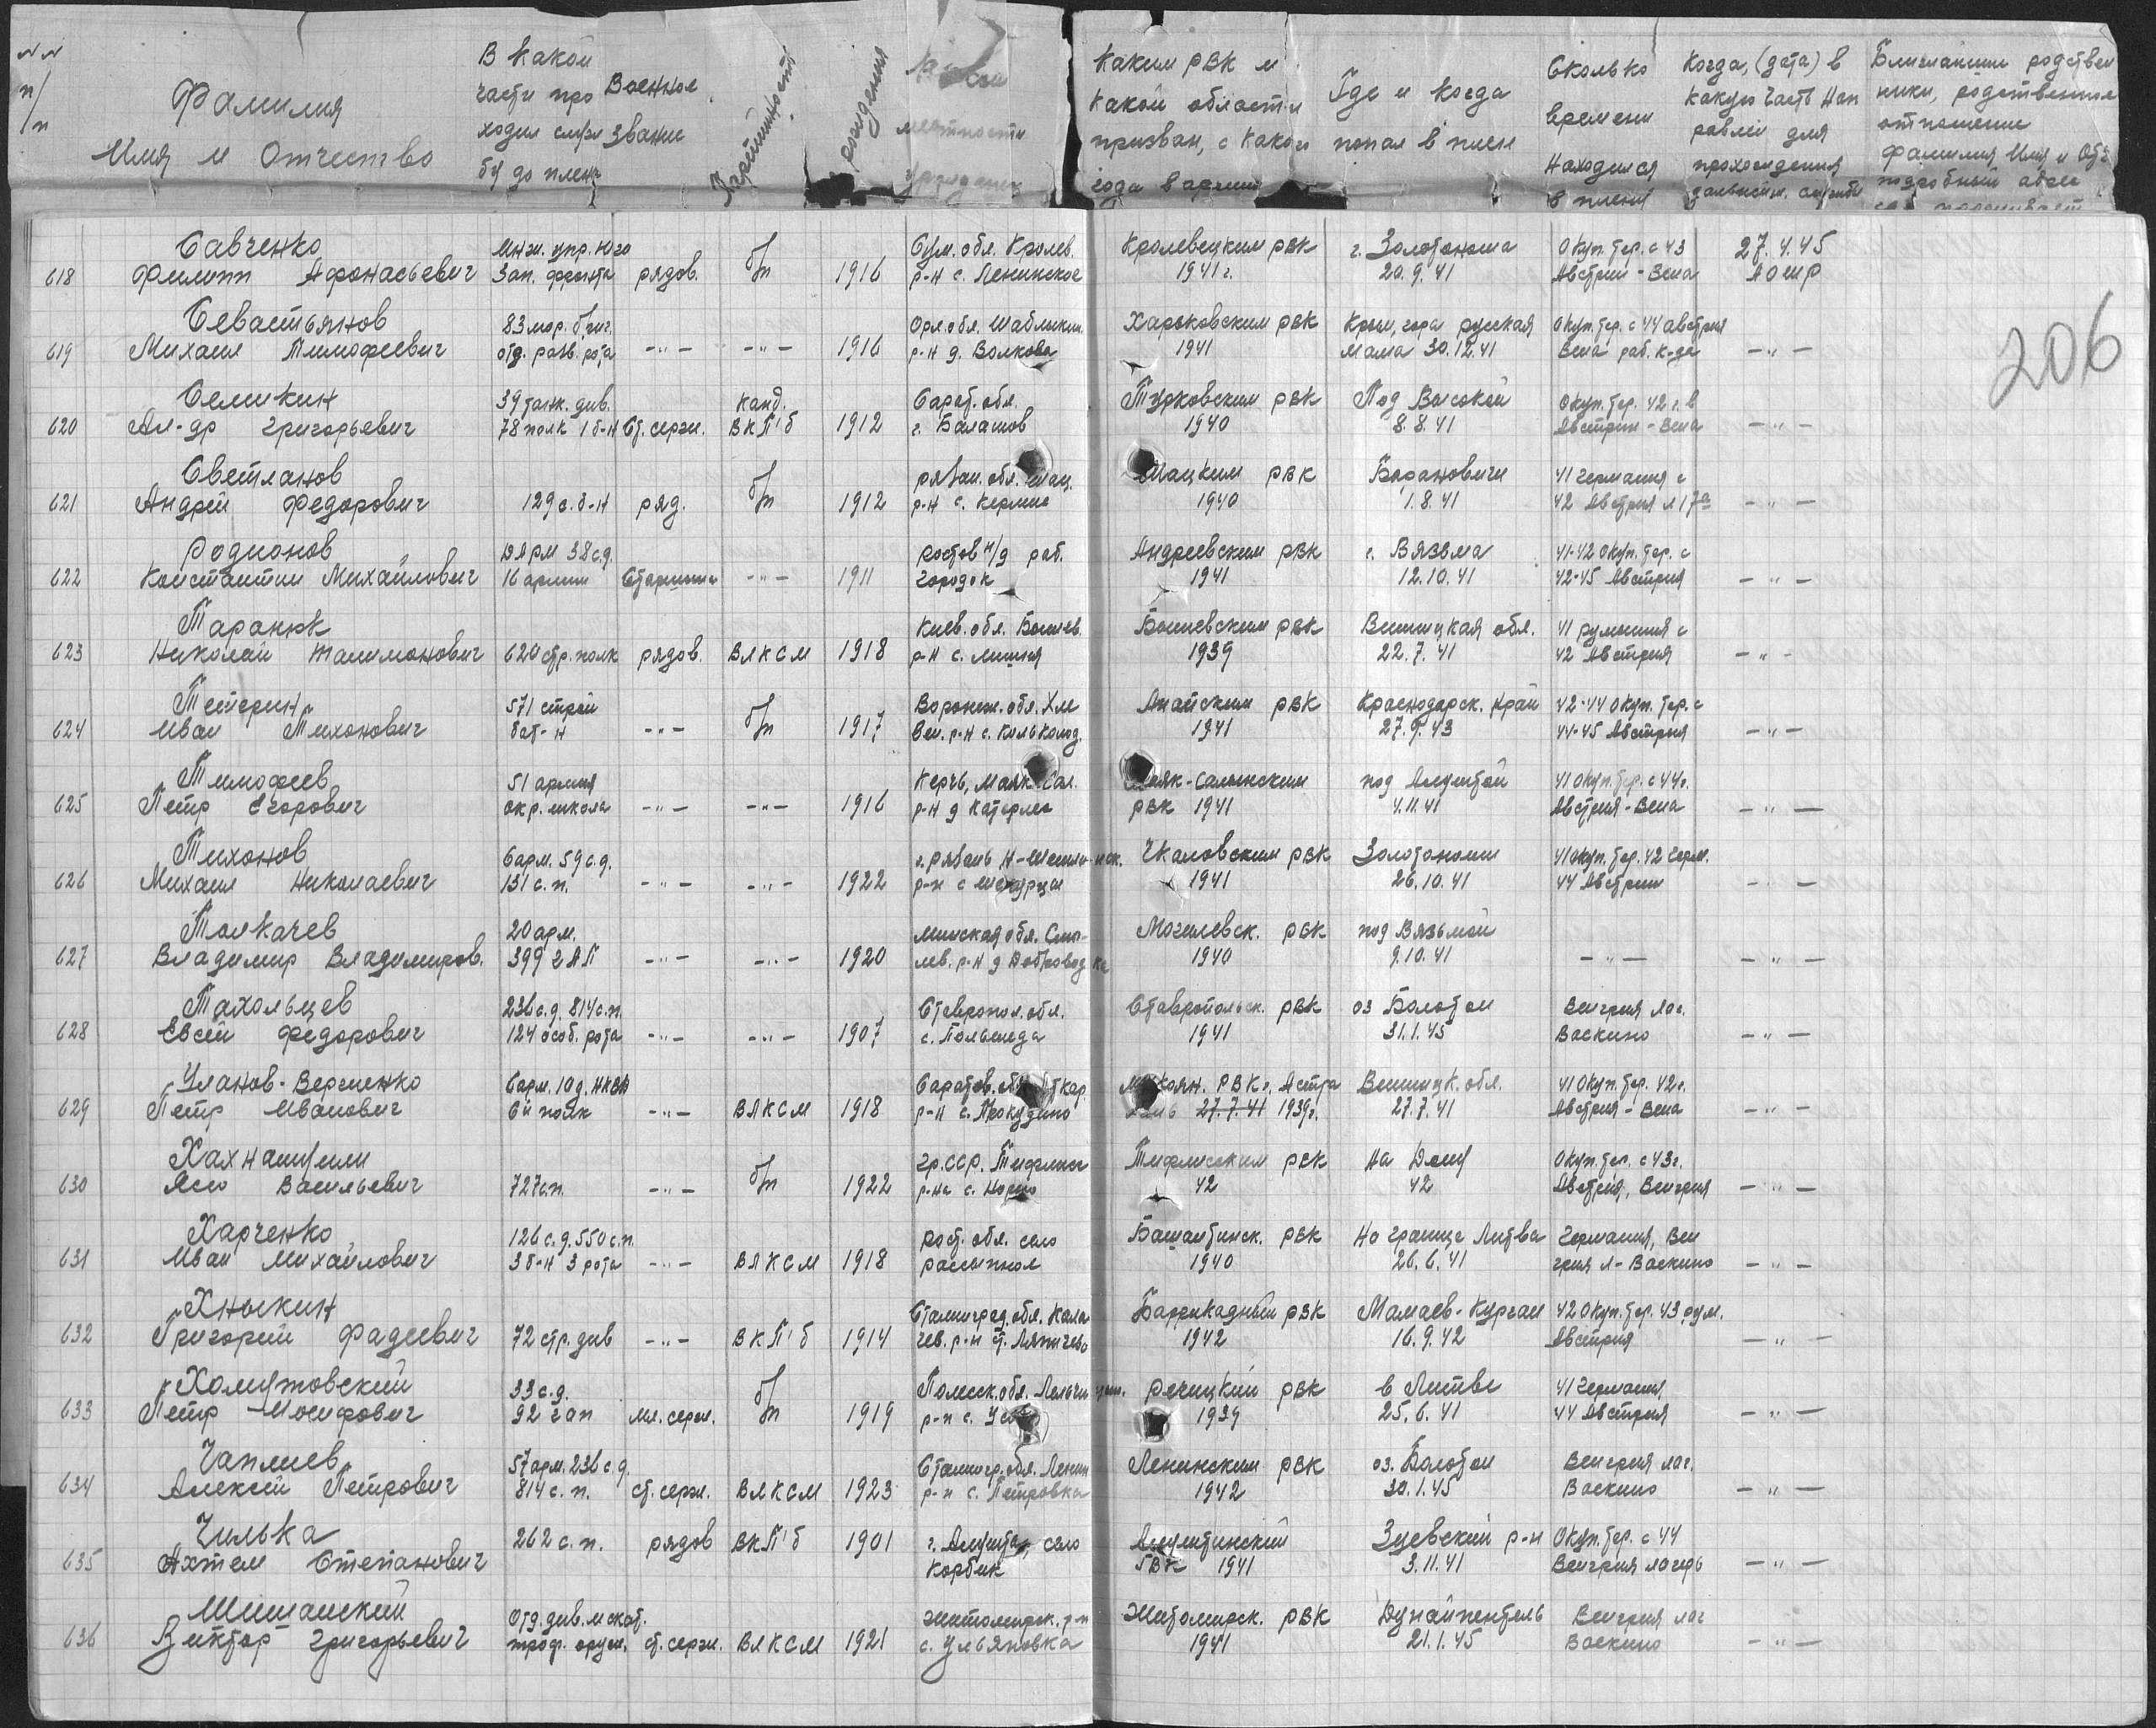 NN п/п
Фамилия
Имя и Отчество
В какой части проходил службу до плена
Военное звание
Партийность
рождения
местности
Каким РВК и какой области призван, с какого года в армии
Где и когда попал в плен
Сколько времени находился в плену
Когда, (дата) в какую часть направлен для прохождения дальнейш. службы
Ближайшие родственники, родственное отношение фамилия Имя и Отч. подробный адрес
206
Савченко Инж. упр. Юго б/п Сум. обл. Кролев. Кролевецким РВК г. Золотоноша Окуп. тер. с 43 27.4.45
618 Филипп Афонасьевич Зап. фронта рядов. 1916 р-н с. Ленинское 1941 г. 20.9.41 Австрии - Вена
Севастьянов 83 мор. бриг. Орл. обл. Шаблыкин. Харьковским РВК Крым, гора русская Окуп. тер. с 44 австрия
619 Михаил Тимофеевич отд. разв. рота -"- -"- 1916 р-н д. Волкова 1941 мама 30.12.41 Вена раб. к-да -"-
Семикин 39 танк. див. канд. Сарат. обл. Турковским РВК Под Высокой Окуп. тер. 42 г. в
620 Ал-др Григорьевич 78 полк 1 б-н Ст. серж. ВКП'б 1912 г. Балашов 1940 8.8.41 Австрии - Вена -"-
Светланов б/п рязан. обл. Шац. Шацким РВК Барановичи 41 германия с
621 Андрей Федорович 129 с. б-н ряд. 1912 р-н с. Кермис 1940 1.8.41 42 Австрия л 17а -"-
Родионов 38 с.д. Ростов н/д раб. Андреевским РВК г. Вязьма 41-42 окуп. тер. с
622 Константин Михайлович 16 армии Старшина -"- 1911 городок 1941 12.10.41 42-45 Австрия -"-
Таранюк Киев. обл. Бышев. Бышевским РВК Винницкая обл. 41 румыния с
623 Николай Талимонович 620 стр. полк рядов. ВЛКСМ 1918 р-н с. Лишня 1939 22.7.41 42 Австрия -"-
Тетерин 571 строй б/п Воронеж. обл. Хле Анапским РВК Краснодарск. край 42-44 окуп. тер. с
624 Иван Тихонович бат-н -"- 1917 вен. р-н с. 1941 27.9.43 44-45 Австрия -"-
Тимофеев 51 армия Керчь, Маяк Сал. Маяк-Салынским под Алуштой 41 окуп. тер. с 44 г.
625 Петр Егорович окр. школа -"- -"- 1916 р-н д Катерлез РВК 1941 4.11.41 Австрия - Вена -"-
Тихонов 6 арм. 59 с.д. г. рязань Чкаловским РВК Золотоноши 41 окуп. тер. 42 герм.
626 Михаил Николаевич 131 с.п. -"- -"- 1922 р-н с 1941 26.10.41 44 Австрии -"-
Толкачев 20 арм. Минская обл. Смо- Могилевск. РВК под Вязьмой
627 Владимир Владимиров. 399 г АП -"- -"- 1920 лев. р-н д Доброводка 1940 9.10.41 -"- -"-
Тахольцев 236 с.д. 814 с.п. Ставропол. обл. Ставропольск. РВК оз Болотон Венгрия лаг.
628 Евсей Федорович 124 особ. рота -"- -"- 1907 с. 1941 31.1.45 Васкино -"-
Уланов-Вергиенко 6 арм. 10 д. НКВД Саратов. обл. Аткар Микоян. РВК г. Астра Винницк. обл. 41 окуп. тер. 42 г.
629 Петр Иванович 6й полк -"- ВЛКСМ 1918 р-н с. Прокудино хань 27.7.41 1939 г. 27.7.41 Австрия - Вена -"-
Хахнашвили б/п Гр.ССР. Тифлис Тифлисским РВК На Дону Окуп. тер. с 43 г.
630 Ясо Васильевич 727 с.п. -"- 1922 р-на с. Норио 42 42 Австрия, Венгрия -"-
Харченко 126 с.д. 550 с.п. рост. обл. село Башантинск. РВК На границе Литва Германия, Вен
631 Иван Михайлович 3 б-н 3 рота -"- ВЛКСМ 1918 рассыпное 1940 26.6.41 грия л-Васкино -"-
Хныкин Сталинград. обл. Кала Баррикадный РВК Мамаев-Курган 42 окуп. тер. 43 рум.
632 Григорий Фадеевич 72 стр. див -"- ВКП'б 1914 чев. р-н ст. Ляпичево 1942 16.9.42 Австрия -"-
Холитовский 33 с.д. б/п Полесск. обл. Лельчи Речицкий РВК в Литве 41 Германия
633 Петр Иосифович 92 гап мл. серж. 1919 р-н с. 1939 25.6.41 44 Австрия -"-
Чаплиев 57 арм. 236 с.д. Сталингр. обл. Ленин Ленинским РВК оз. Болотон Венгрия лаг.
634 Алексей Петрович 814 с.п. ст. серж. ВЛКСМ 1923 р-н с. Петровка 1942 30.1.45 Васкино -"-
Чилька 262 с.п. рядов ВКП'б 1901 г. Алушта, село Алуштинский Зуевский р-н Окуп. тер. с 44
635 Ахтем Степанович Корбек ГВК 1941 3.11.41 Венгрия лагерь -"-
Шиманский Отд. див. Житомирск. р-н Житомирск. РВК Дунайпентель Венгрия лаг
636 Виктор Григорьевич троф. оруж. ст. серж. ВЛКСМ 1921 с. Ульяновка 1941 21.1.45 Васкино -"-